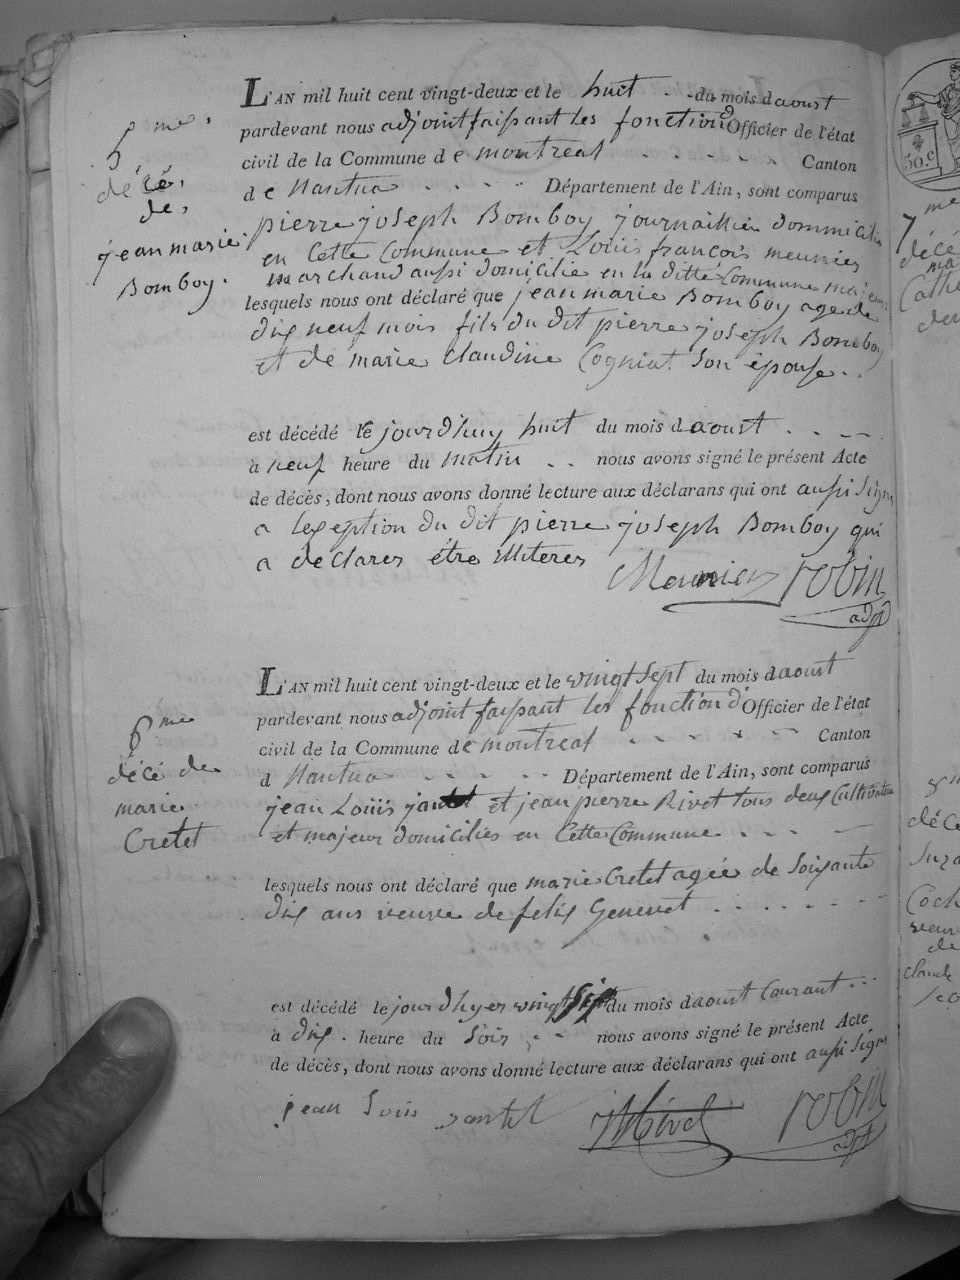 5me.
décé,
de,
jean marie
Bomboy.
L'AN mil huit cent vingt-deux et le huit . . du mois d aoust
pardevant nous adjoint faisant les fonction d' Officier de l'état
civil de la Commune de montreal . . . . . . Canton
de Nantua . . . . . Département de l'Ain, sont comparus
pierre joseph Bomboy journallier dommicilié
en Cette Commune et Louis françois meunier
marchand aussi domicilié en la ditte Commune majeur
lesquels nous ont déclaré que jean marie Bomboy age de
dix neuf mois fils du dit pierre joseph Bomboy
et de marie Claudine Cogniat Son épouse . .
est décédé le jourdhuy huit du mois d aoust . . .
à neuf heure du matin . . nous avons signé le présent Acte
de décès, dont nous avons donné lecture aux déclarans qui ont aussi Signé
a lexeption du dit pierre joseph Bomboy qui
a declarer étre illiteres
Meunier robin
adjt
6me
décé de
marie
Cretet
L'AN mil huit cent vingt-deux et le vingt Sept du mois d aoust
pardevant nous adjoint faisant les fonction d' Officier de l'état
civil de la Commune de montreal . . . . . Canton
d Nantua . . . . . Département de l'Ain, sont comparus
jean Louis jantet et jean pierre Rivet tous deux Cultivateur
et majeur domiciliés en Cette Commune . . . .
lesquels nous ont déclaré que marie Cretet agée de Soixante
dix ans veuve de felix Genevet . . . . . . . .
est décédé le jour dhyer vingt Six du mois d aoust Courant . . .
à dix . heure du Soir . . . nous avons signé le présent Acte
de décès, dont nous avons donné lecture aux déclarans qui ont aussi Signé
jean Louis jantet robin
adjt
50.c
7me
décé